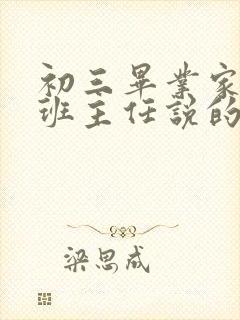 初三畢業家
班主任說的
梁思成